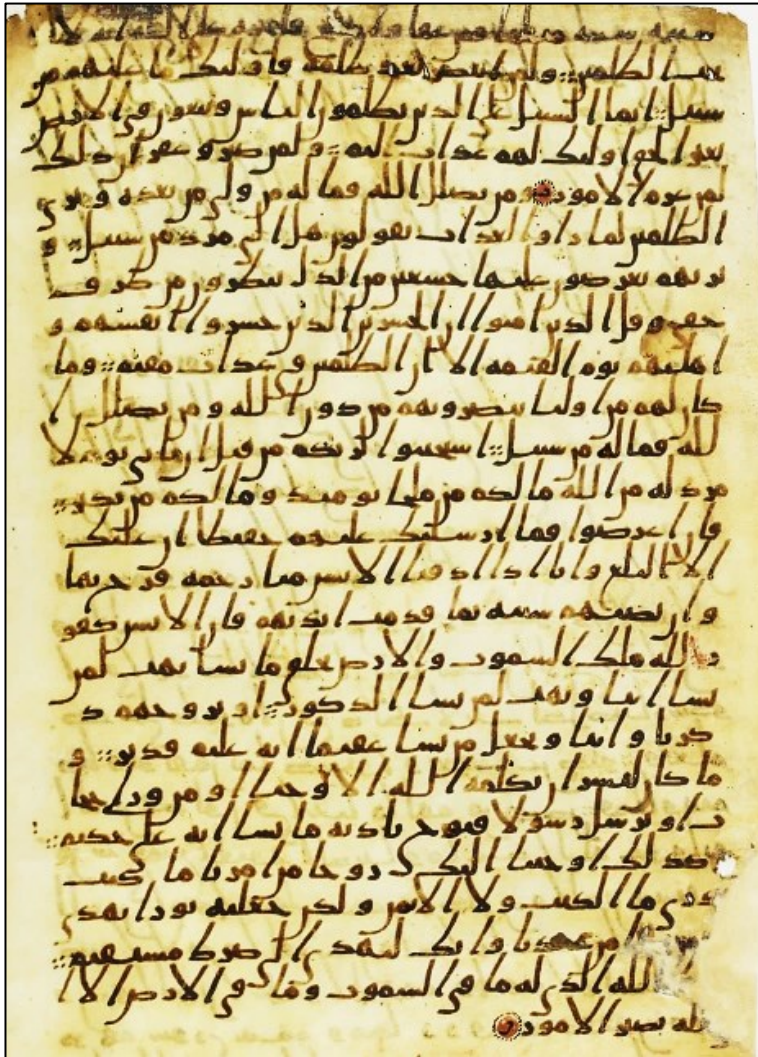 سيه سيه مثلها فمن عفا واصلح فاجره على الله انه لا
يحب الظلمين ولمن انتصر بعد ظلمه فاوليك ما عليهم من
سبيل انما السبيل على الذين يظلمون الناس ويبغون في الارض
بغير الحق اوليك لهم عذاب اليم ولمن صبر وغفر ان ذلك
لمن عزم الامور ومن يضلل الله فما له من ولي من بعده وترى
الظلمين لما راوا العذاب يقولون هل الى مرد من سبيل و
تريهم يعرضون عليها خشعين من الذل ينظرون من طرف
خفي وقل الذين امنوا ان الخسرين الذين خسروا انفسهم و
اهليهم يوم القيمه الا ان الظلمين في عذاب مقيم وما
كان لهم من اوليا ينصرونهم من دون الله ومن يضلل ا
لله فما له من سبيل استجيبوا لربكم من قبل ان ياتي يوم لا
مرد له من الله ما لكم من ملجا يوميذ وما لكم من نكير
فان اعرضوا فما ارسلنك عليهم حفيظا ان عليك
الا البلغ وانا اذا اذقنا الانسن منا رحمه فرح بها
وان تصبهم سيه بما قدمت ايديهم فان الانسن كفو
ر لله ملك السموت والارض يخلق ما يشا يهب لمن
يشا انثا ويهب لمن يشا الذكور او يزوجهم ذ
كرنا وانثا ويجعل من يشا عقيما انه عليم قدير و
ما كان لبشر ان يكلمه الله الا وحيا او من وراي حجا
ب او يرسل رسولا فيوحي باذنه ما يشا انه علي حكيم
كذلك اوحينا اليك روحا من امرنا ما كنت
تدري ما الكتب ولا الايمن ولكن جعلنه نورا نهدي
من عبدنا وانك لتهدي الى صرط مستقيم
الله الذي له ما في السموت وما في الارض الا ا
لله تصير الامور